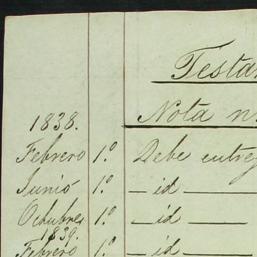 Testa
Nota n
1838.
Febrero 1.º Debe entreg
Junio 1.º — id —
Octubre 1.º — id —
1839.
Febrero 1.º — id —